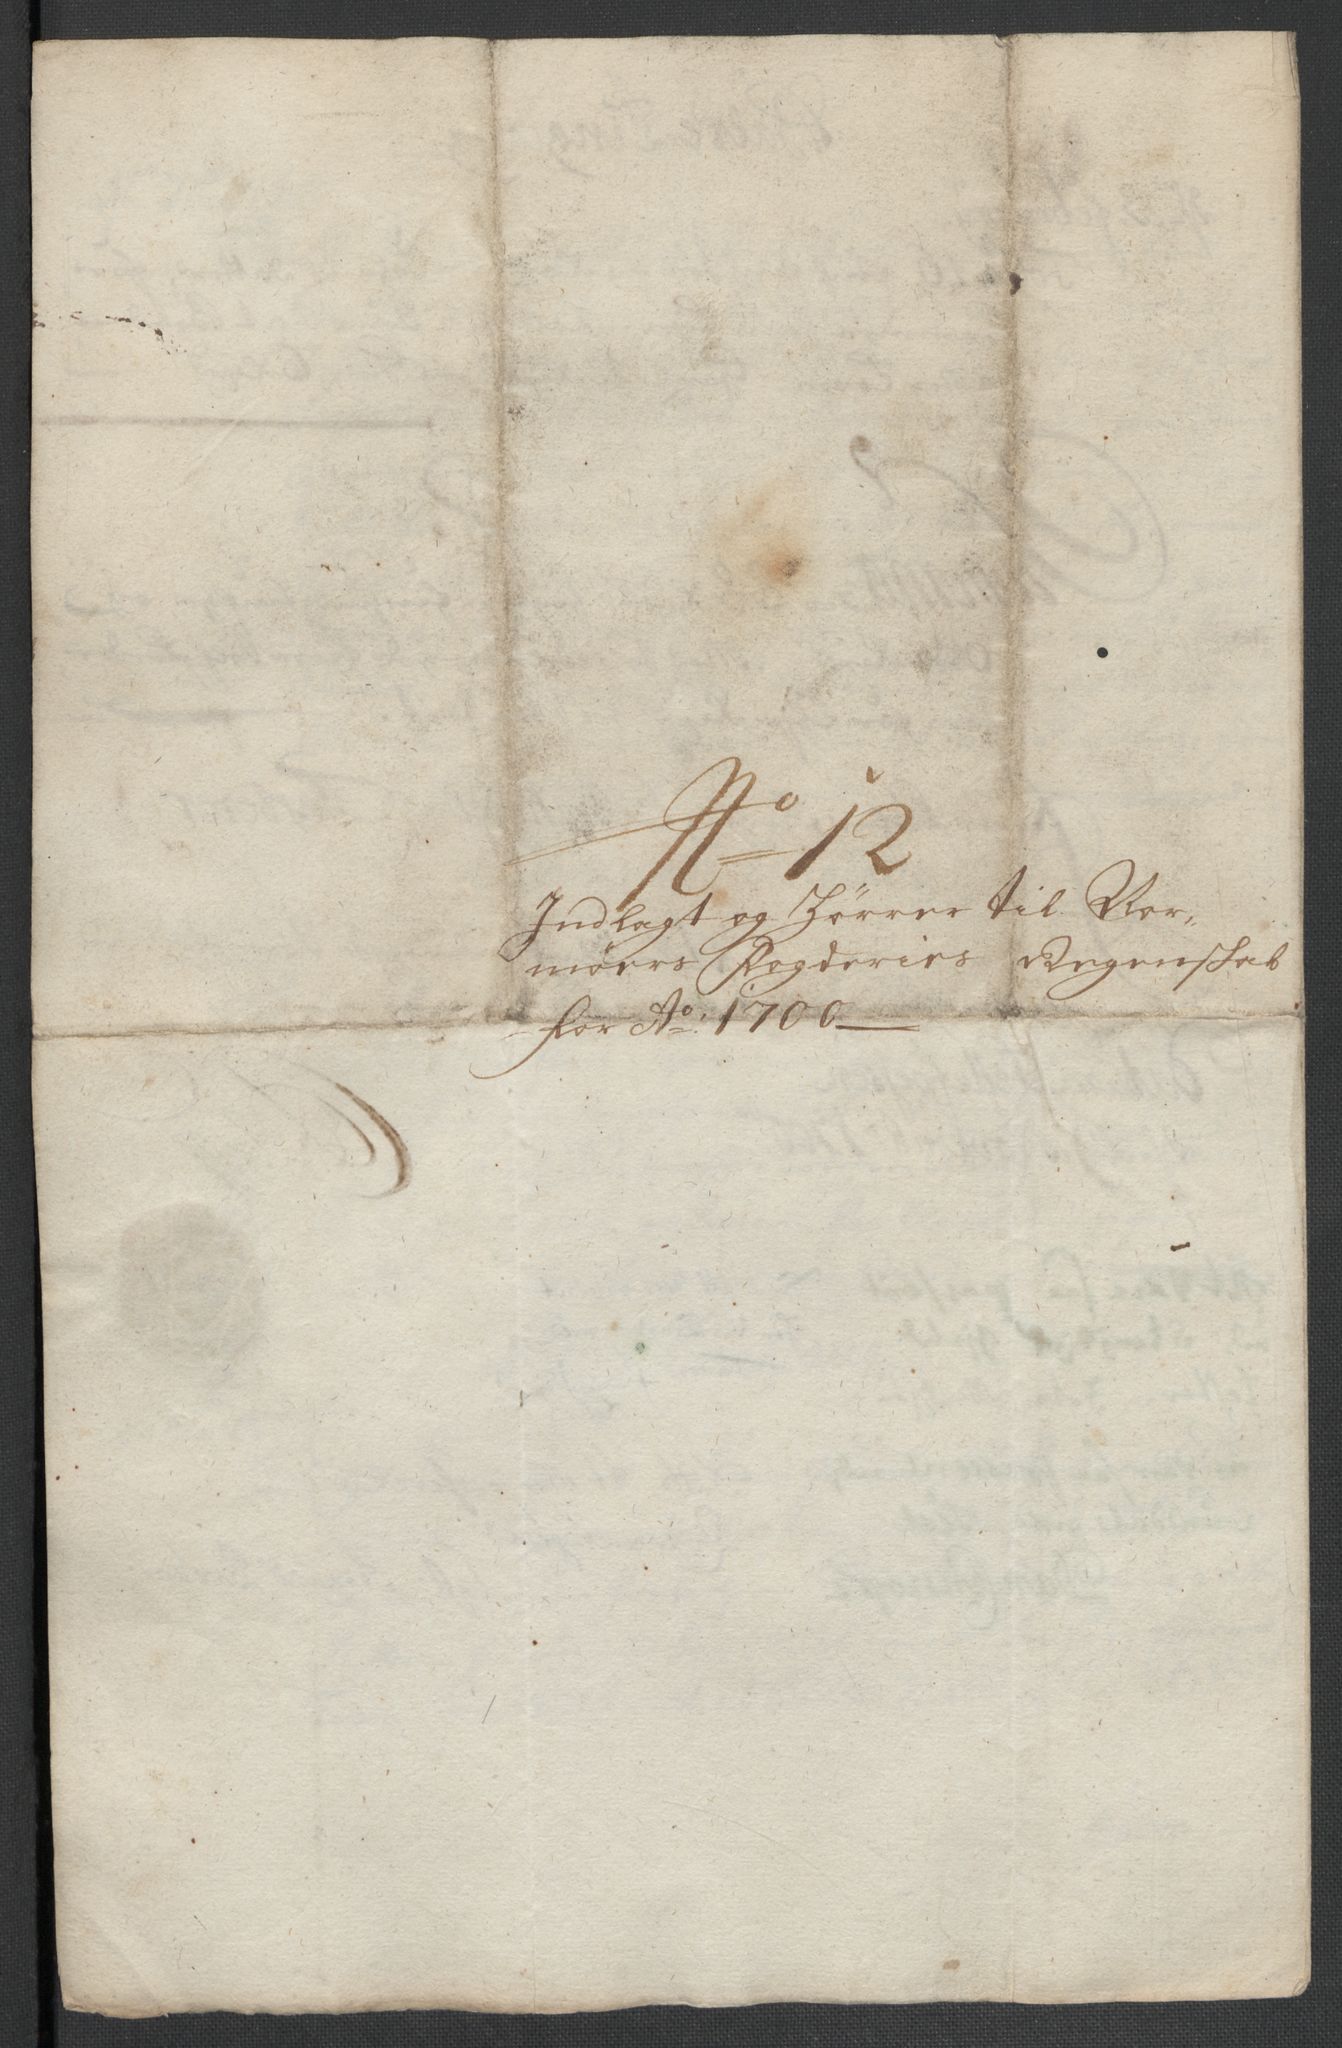 No 12
Indlagt og Hörrer til Nor„
möers fogderies Regenskab
for Ao: 1700